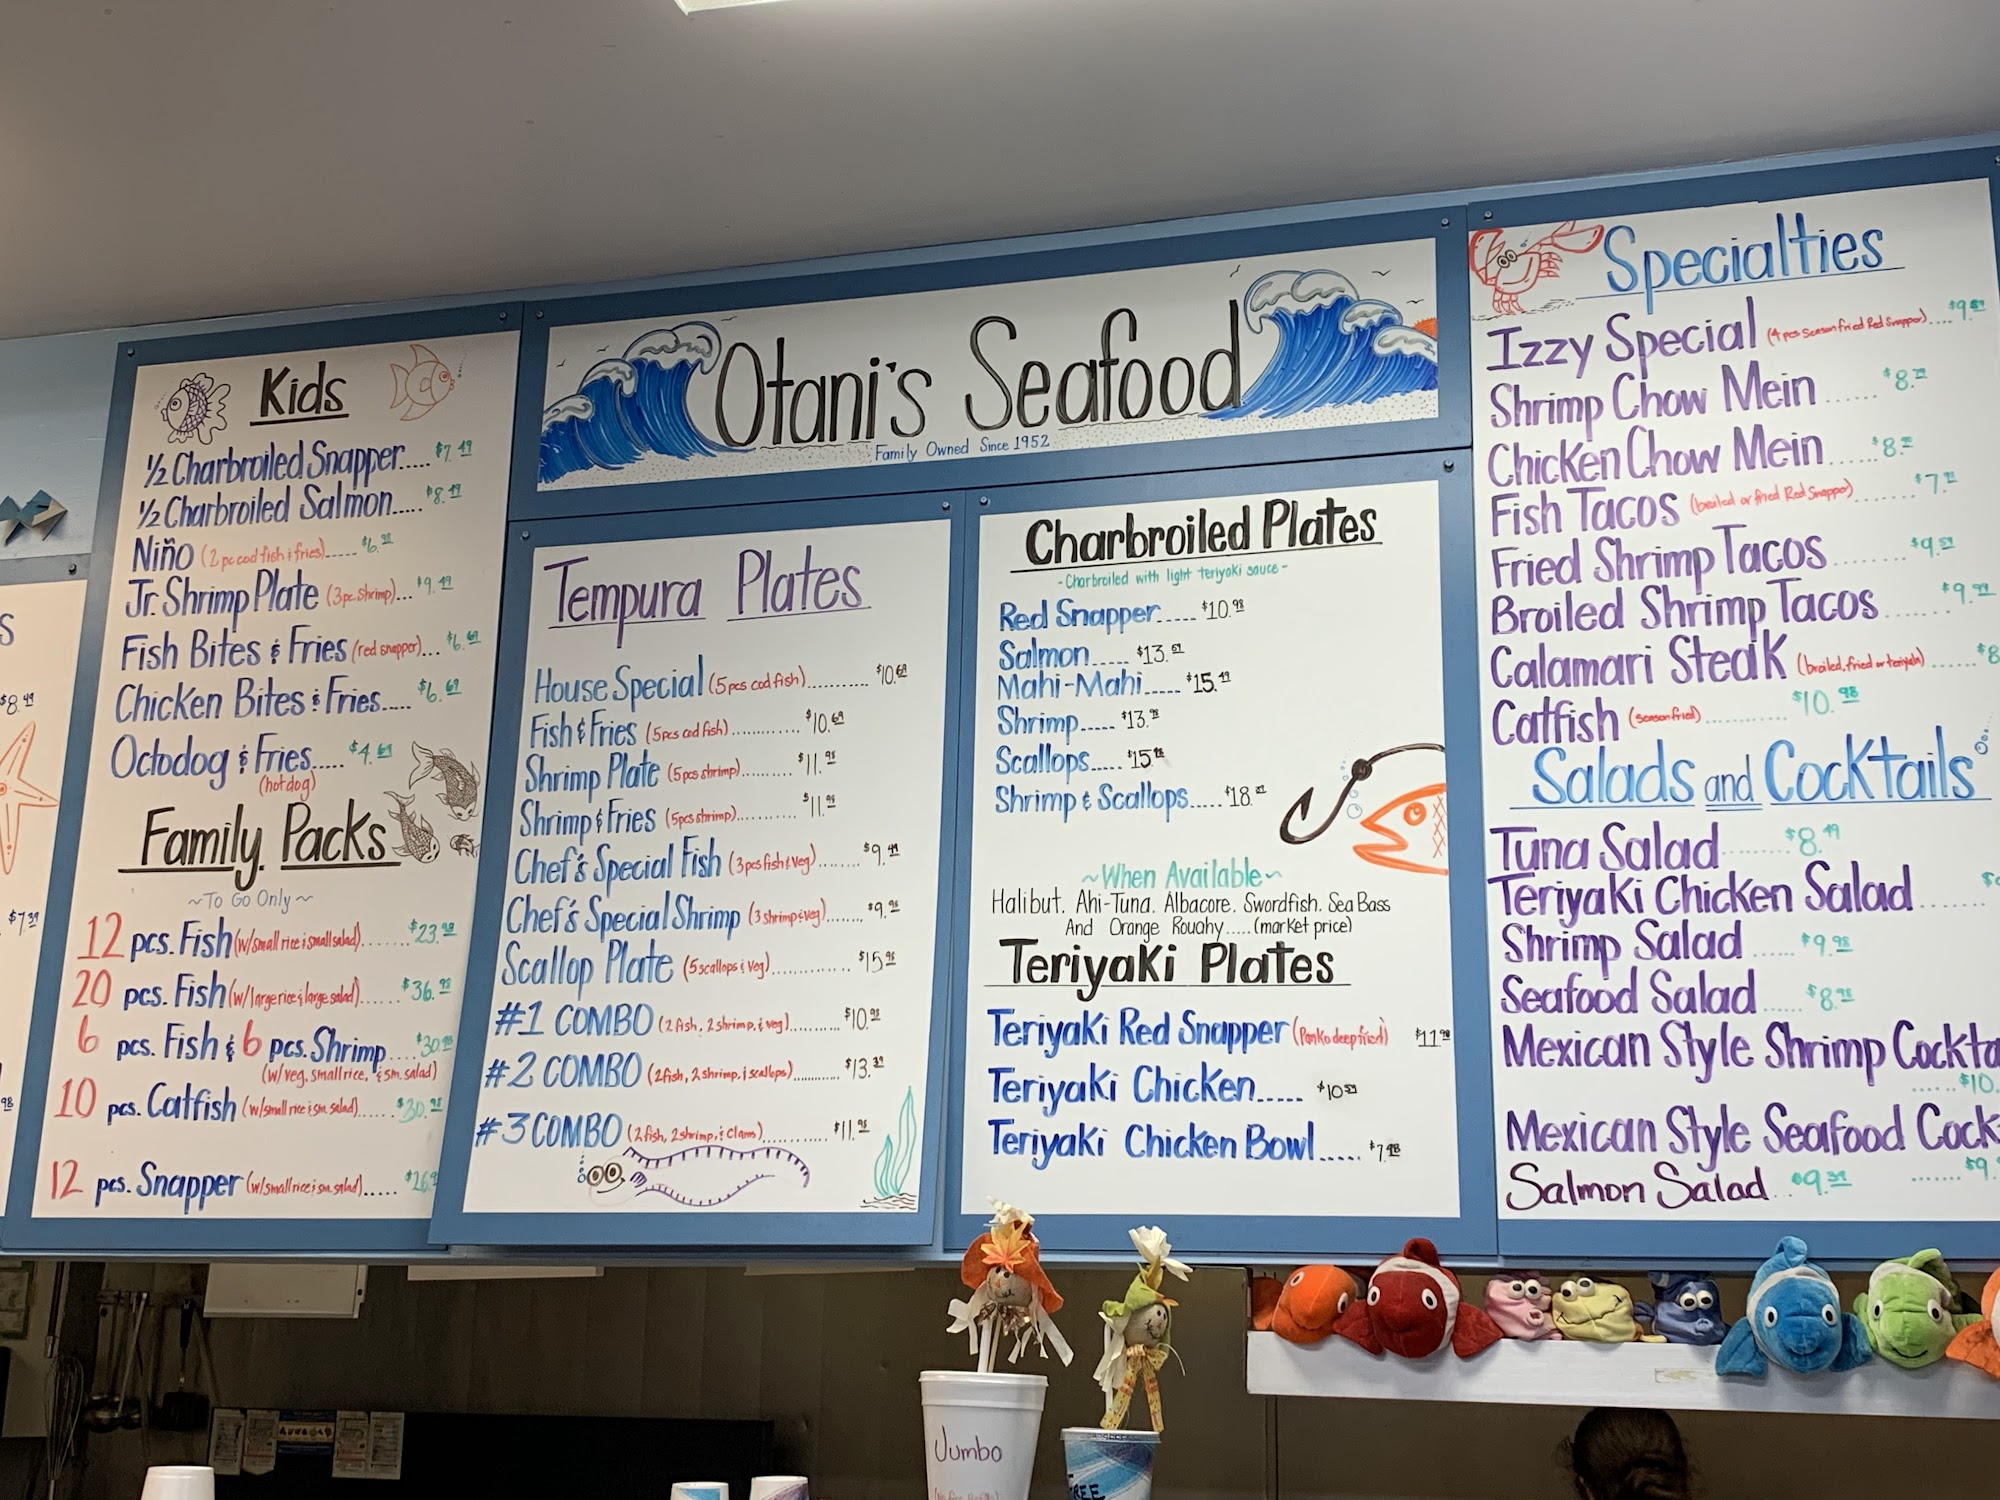 S
$8.49
$7.39
98
Kids
1/2 Charbroiled Snapper..... $7.49
1/2 Charbroiled Salmon..... $8.49
Niño (2 pc cod fish & fries)..... $6.98
Jr. Shrimp Plate (3 pc. shrimp)... $9.49
Fish Bites & Fries (red snapper)... $6.69
Chicken Bites & Fries..... $6.69
Octodog & Fries..... $4.69
(hotdog)
Family Packs
~To Go Only~
12 pcs. Fish (w/small rice & small salad)...... $23.98
20 pcs. Fish (w/large rice & large salad)...... $36.98
6 pcs. Fish & 6 pcs. Shrimp.... $30.98
(w/veg, small rice, & sm. salad)
10 pcs. Catfish (w/small rice & sm. salad)..... $30.98
12 pcs. Snapper (w/small rice & sm. salad)..... $26.9
Otani's Seafood
Family Owned Since 1952
Tempura Plates
House Special (5 pcs cod fish)........... $10.69
Fish & Fries (5 pcs cod fish)............. $10.69
Shrimp Plate (5 pcs shrimp).......... $11.98
Shrimp & Fries (5 pcs shrimp)............ $11.98
Chef's Special Fish (3 pcs fish & veg)........ $9.49
Chef's Special Shrimp (3 shrimp & veg)....... $9.98
Scallop Plate (5 scallops & veg).............. $15.98
#1 COMBO (2 fish, 2 shrimp, & veg)........... $10.98
#2 COMBO (2 fish, 2 shrimp, & scallops)........... $13.39
#3 COMBO (2 fish, 2 shrimp, & clams)............ $11.98
Charbroiled Plates
- Charbroiled with light teriyaki sauce -
Red Snapper..... $10.98
Salmon..... $13.69
Mahi-Mahi..... $15.49
Shrimp..... $13.98
Scallops..... $15.98
Shrimp & Scallops..... $18.
~When Available~
Halibut. Ahi-Tuna. Albacore. Swordfish. Sea Bass
And Orange Rouahy..... (market price)
Teriyaki Plates
Teriyaki Red Snapper (Panko deep fried) $11.98
Teriyaki Chicken..... $10.59
Teriyaki Chicken Bowl..... $7.98
Specialties
Izzy Special (4 pcs season fried Red Snapper).... $9.
Shrimp Chow Mein ...... $8.
Chicken Chow Mein ...... $8.
Fish Tacos (broiled or fried Red Snapper)........ $7.
Fried Shrimp Tacos ........ $9.59
Broiled Shrimp Tacos ...... $9.99
Calamari Steak (broiled, fried or teriyaki)....... $8
Catfish (season fried)............ $10.98
Salads and Cocktails
Tuna Salad ........ $8.49
Teriyaki Chicken Salad ........
Shrimp Salad ...... $9.98
Seafood Salad ..... $8.98
Mexican Style Shrimp Cockta
..... $10.
Mexican Style Seafood Cock
....... $9.
Salmon Salad .. $9.39
Jumbo
FREE